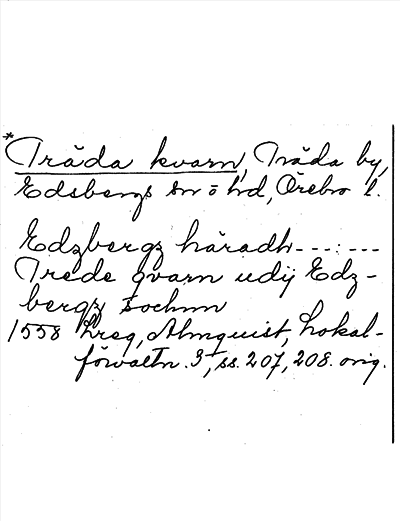 *Träda kvarn, Träda by,
Edsbergs sn o hd, Örebro l.
Edzbergz häradh ---:---
Trede qvarn udij Edz-
bergz sochnn
1558 Lreg, Almquist, Lokal-
förvaltn. 3, ss. 207, 208. orig.